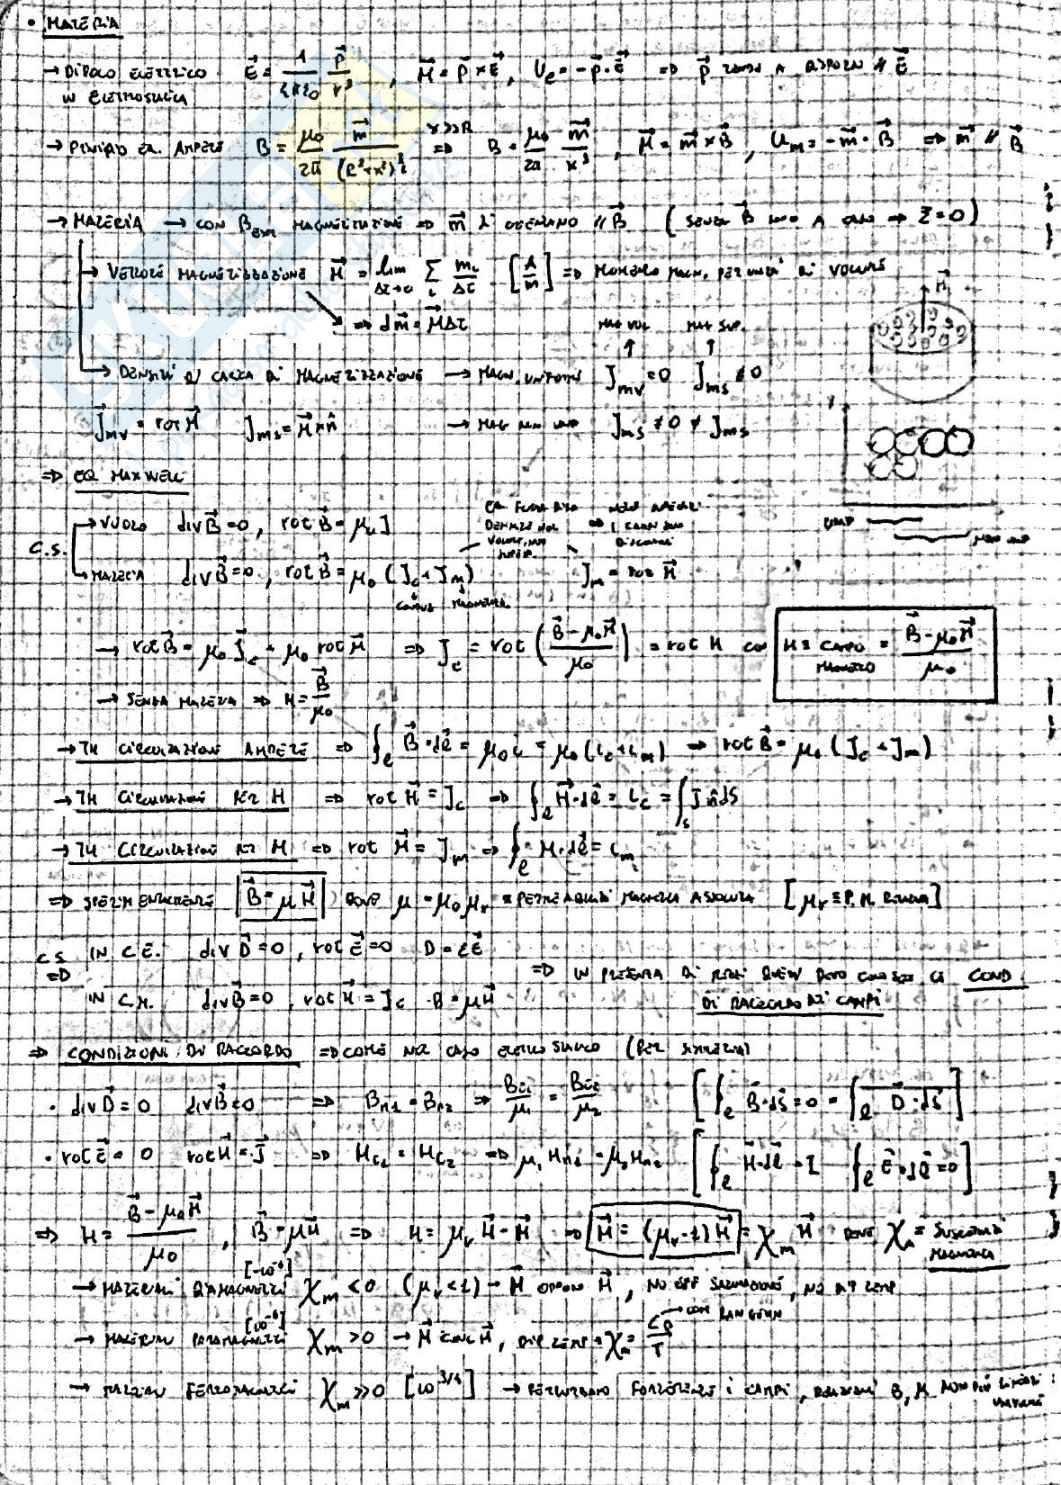 • MATERIA
→ DIPOLO ELETTRICO E⃗ = 1/(4πε₀) p⃗/r³ , M⃗ = p⃗ × E⃗ , U_e = -p⃗·E⃗ ⇒ p⃗ TENDE A DISPORSI // E⃗
IN ELETTROSTATICA
→ PRINCIPIO EQ. AMPERE B = μ₀/2π m⃗/(R²+x²)^(3/2) ⇒ (r>>R) B = μ₀/2π m⃗/x³ , M⃗ = m⃗ × B⃗ , U_m = -m⃗·B⃗ ⇒ m⃗ // B⃗
→ MATERIA → CON B_EST MAGNETIZZAZIONE ⇒ m⃗ SI ORIENTANO // B⃗ ( SENZA B⃗ SONO A CASO → Σ=0 )
→ VETTORE MAGNETIZZAZIONE M⃗ = lim Δτ→0 Σ_i m_i/Δτ [A/m] ⇒ MOMENTO MAGN. PER UNITÀ DI VOLUME
⇒ dm⃗ = M⃗Δτ
MAG VOL MAG SUP.
→ DENSITÀ DI MAGNETIZZAZIONE → MAGN. UNIFORME J_mv = 0 J_ms ≠ 0
J⃗_mv = rot M⃗ J_ms = M⃗ × n̂ → MAG NON UNIF J_ms ≠ 0 ≠ J_ms
⇒ EQ MAXWELL
C.S. → VUOTO div B⃗ = 0 , rot B⃗ = μ₀J
→ MATERIA div B⃗ = 0 , rot B⃗ = μ₀ (J_c + J_m) J_m = rot M⃗
→ rot B⃗ = μ₀ J⃗_c + μ₀ rot M⃗ ⇒ J_c = rot ((B⃗ - μ₀M⃗)/μ₀) = rot H CON H ≡ CAMPO MAGNETICO = (B⃗ - μ₀M⃗)/μ₀
→ SENZA MATERIA ⇒ H = B⃗/μ₀
→ TH CIRCUITAZIONE AMPERE ⇒ ∮_ℓ B⃗·dℓ⃗ = μ₀i = μ₀(i_c + i_m) → rot B⃗ = μ₀ (J_c + J_m)
→ TH CIRCUITAZIONE PER H ⇒ rot H⃗ = J_c ⇒ ∮_ℓ H⃗·dℓ⃗ = i_c = ∫_s J n̂ dS
→ TH CIRCUITAZIONE PER M ⇒ rot M⃗ = J_m ⇒ ∮_ℓ M·dℓ⃗ = i_m
⇒ SPERIMENTALMENTE B⃗ = μH⃗ DOVE μ = μ₀μ_r ≡ PERMEABILITÀ MAGNETICA ASSOLUTA [μ_r ≡ P. M. RELATIVA]
C.S. ⇒ IN C.E. div D⃗ = 0 , rot E⃗ = 0 D = εE⃗
IN C.M. div B⃗ = 0 , rot H⃗ = J_c B = μH⃗
⇒ IN PRESENZA DI DEVO COND. DI RACCORDO DEI CAMPI
⇒ CONDIZIONI DI RACCORDO ⇒ COME NEL CASO ELETTROSTATICO (PER SIMMETRIA)
• div D⃗ = 0 div B⃗ = 0 ⇒ B_n1 = B_n2 ⇒ B_t1/μ₁ = B_t2/μ₂ [∮_ℓ B⃗·dS⃗ = 0 = ∫_ℓ D⃗·dS⃗]
• rot E⃗ = 0 rot H⃗ = J⃗ ⇒ H_t1 = H_t2 ⇒ μ₁H_n1 = μ₂H_n2 [∮_ℓ H⃗·dℓ⃗ = I ∮_ℓ E⃗·dℓ⃗ = 0]
⇒ H = (B⃗ - μ₀M⃗)/μ₀ , B⃗ = μH⃗ ⇒ H = μ_r H⃗ - M⃗ ⇒ M⃗ = (μ_r - 1) H⃗ = χ_m H⃗ DOVE χ_m = SUSCETTIVITÀ MAGNETICA
→ MATERIALI DIAMAGNETICI [-10⁻⁶] χ_m < 0 (μ_r < 1) → M⃗ OPPONE H⃗ , NO EFF SATURAZIONE , NO DIP TEMP
→ MATERIALI PARAMAGNETICI [10⁻⁶] χ_m > 0 → M⃗ CONC H⃗ , DIP TEMP χ_m = Cρ/T
→ MATERIALI FERROMAGNETICI χ_m >> 0 [10^3/4] → PERTURBANO FORTEMENTE I CAMPI , RELAZIONI B, H NON PIÙ LINEARI